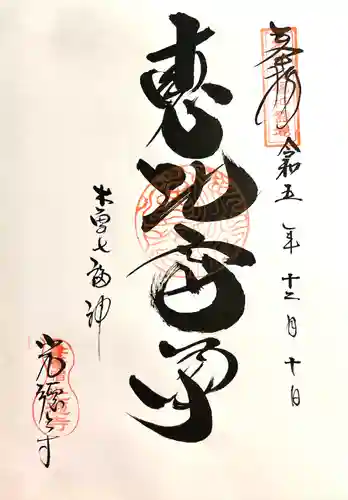 奉拝
令和五年十二月十日
恵比寿尊
木曽七福神